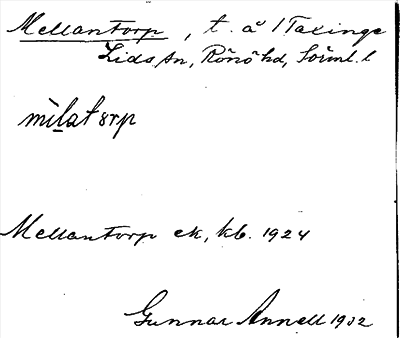 Mellantorp, t. å 1 Taxinge
Lids sn, Rönö hd, Sörml. l
mìlatɔrp
Mellantorp ek, kb. 1924
Gunnar Annell 1932